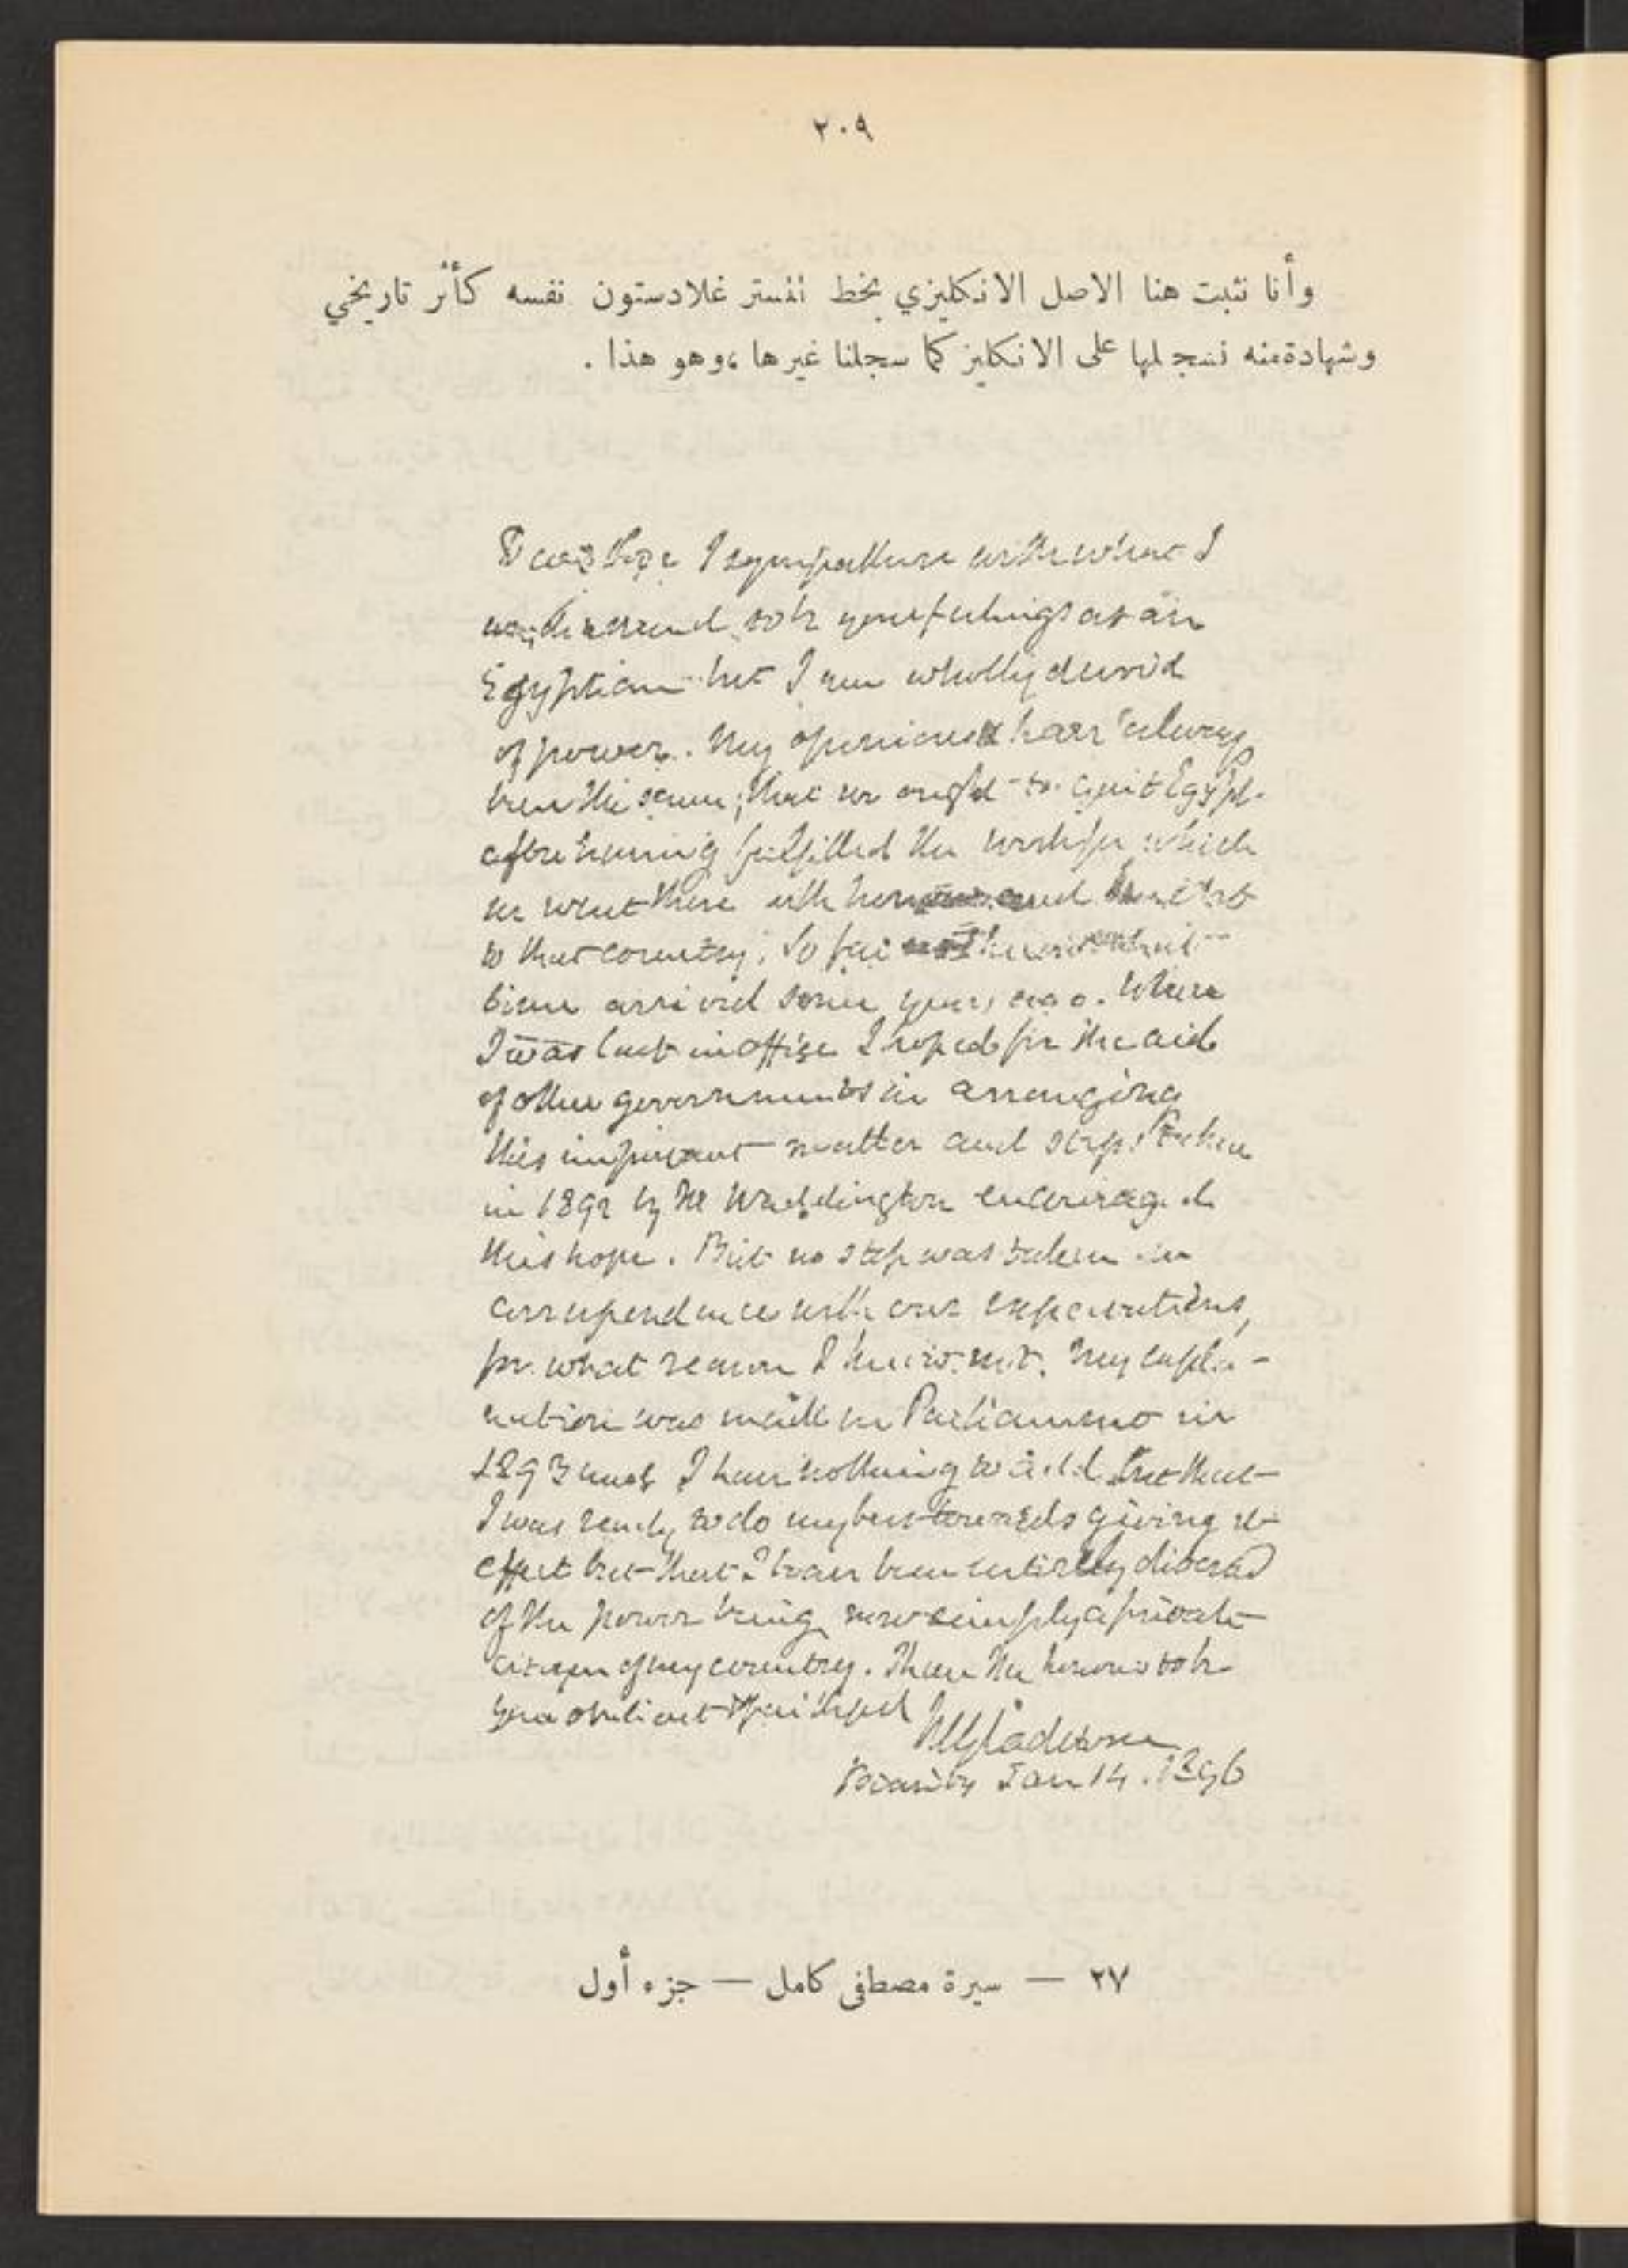 ٢٠٩
وأنا نثبت هنا الاصل الانكليزي بخط المستر غلادستون نفسه كأثر تاريخي
وشهادة منه نسجلها على الانكليز كما سجلنا غيرها ، وهو هذا .
I sympathise with what I
understand to be your feelings as an
Egyptian but I am wholly devoid
of power. My opinions have always
been the same; that we ought to quit Egypt
after having fulfilled the work for which
we went there with honour and
to that country. So far
time arrived some years ago. When
I was last in office I hoped for the aid
of other governments in arranging
this important matter and steps taken
in 1892 by M Waddington encouraged
this hope. But no step was taken in
correspondence with our expectations,
for what reason I know not. My expla-
nation was made in Parliament in
1893 and I have nothing to add but that
I was ready to do my best towards giving it
effect but that I have been entirely
of the power being now simply a private
citizen of my country. I have the honour to be
your obedient & faithful
WGladstone
Biarritz Jan 14. 1896
٢٧ — سيرة مصطفى كامل — جزء أول